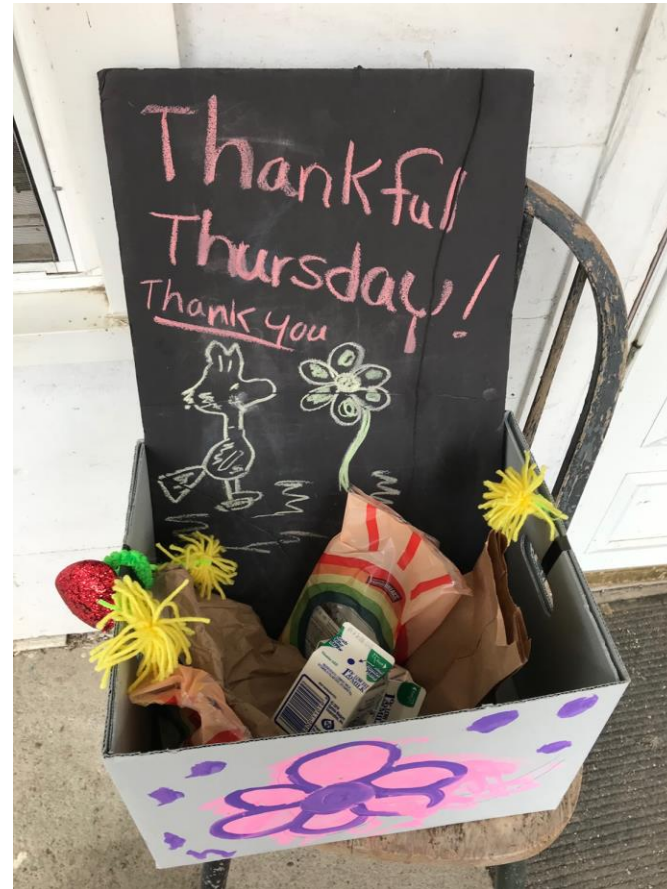 Thankful
Thursday!
Thank you